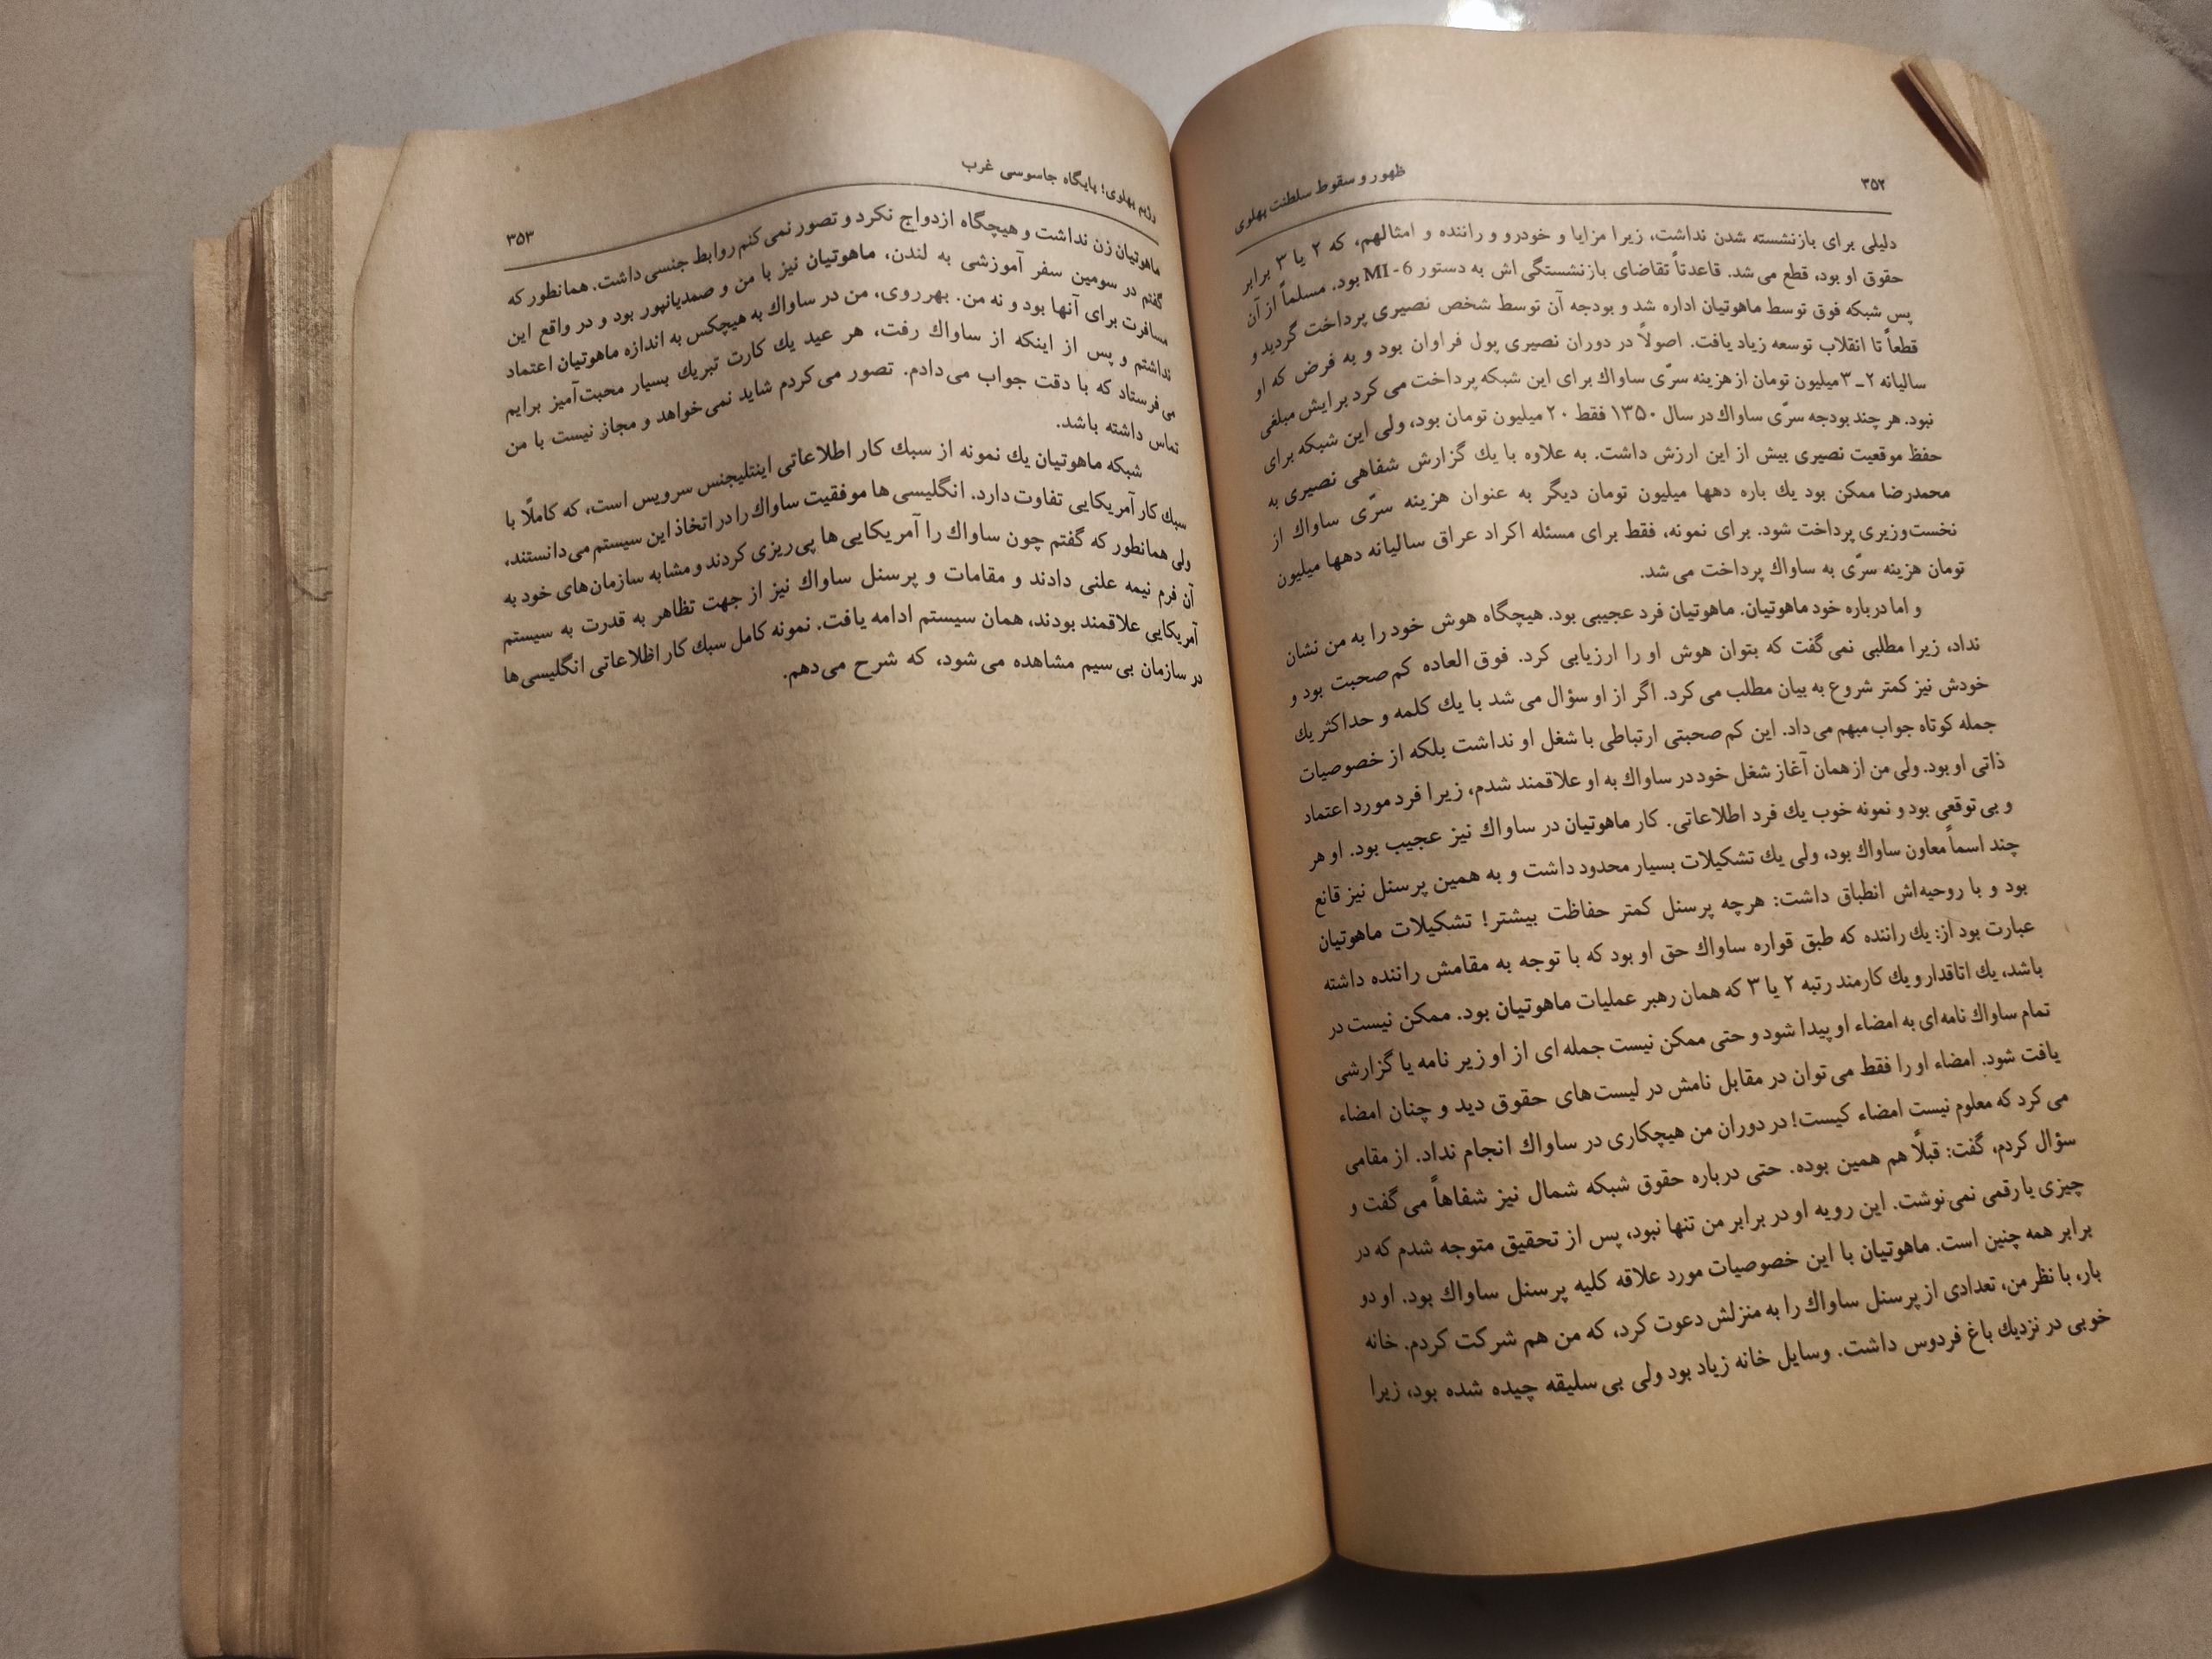 ۳۵۲
ظهور و سقوط سلطنت پهلوی
دلیلی برای بازنشسته شدن نداشت، زیرا مزایا و خودرو و راننده و امثالهم، که ۲ یا ۳ برابر
حقوق او بود، قطع می‌شد. قاعدتاً تقاضای بازنشستگی‌اش به دستور MI-6 بود. مسلماً از آن
پس شبکه فوق توسط ماهوتیان اداره شد و بودجه آن توسط شخص نصیری پرداخت گردید و
قطعاً تا انقلاب توسعه زیاد یافت. اصولاً در دوران نصیری پول فراوان بود و به فرض که او
سالیانه ۲ـ۳ میلیون تومان از هزینه سرّی ساواك برای این شبکه پرداخت می‌کرد برایش مبلغی
نبود. هر چند بودجه سرّی ساواك در سال ۱۳۵۰ فقط ۲۰ میلیون تومان بود، ولی این شبکه برای
حفظ موقعیت نصیری بیش از این ارزش داشت. به علاوه با یك گزارش شفاهی نصیری به
محمدرضا ممکن بود یك باره دهها میلیون تومان دیگر به عنوان هزینه سرّی ساواك از
نخست‌وزیری پرداخت شود. برای نمونه، فقط برای مسئله اکراد عراق سالیانه دهها میلیون
تومان هزینه سرّی به ساواك پرداخت می‌شد.
و اما درباره خود ماهوتیان. ماهوتیان فرد عجیبی بود. هیچگاه هوش خود را به من نشان
نداد، زیرا مطلبی نمی‌گفت که بتوان هوش او را ارزیابی کرد. فوق‌العاده کم‌صحبت بود و
خودش نیز کمتر شروع به بیان مطلب می‌کرد. اگر از او سؤال می‌شد با یك کلمه و حداکثر یك
جمله کوتاه جواب مبهم می‌داد. این کم‌صحبتی ارتباطی با شغل او نداشت بلکه از خصوصیات
ذاتی او بود. ولی من از همان آغاز شغل خود در ساواك به او علاقمند شدم، زیرا فرد مورد اعتماد
و بی‌توقعی بود و نمونه خوب یك فرد اطلاعاتی. کار ماهوتیان در ساواك نیز عجیب بود. او هر
چند اسماً معاون ساواك بود، ولی یك تشکیلات بسیار محدود داشت و به همین پرسنل نیز قانع
بود و با روحیه‌اش انطباق داشت: هرچه پرسنل کمتر حفاظت بیشتر! تشکیلات ماهوتیان
عبارت بود از: یك راننده که طبق قواره ساواك حق او بود که با توجه به مقامش راننده داشته
باشد، یك اتاقدار و یك کارمند رتبه ۲ یا ۳ که همان رهبر عملیات ماهوتیان بود. ممکن نیست در
تمام ساواك نامه‌ای به امضاء او پیدا شود و حتی ممکن نیست جمله‌ای از او زیر نامه یا گزارشی
یافت شود. امضاء او را فقط می‌توان در مقابل نامش در لیست‌های حقوق دید و چنان امضاء
می‌کرد که معلوم نیست امضاء کیست! در دوران من هیچکاری در ساواك انجام نداد. از مقامی
سؤال کردم، گفت: قبلاً هم همین بوده. حتی درباره حقوق شبکه شمال نیز شفاهاً می‌گفت و
چیزی یا رقمی نمی‌نوشت. این رویه او در برابر من تنها نبود، پس از تحقیق متوجه شدم که در
برابر همه چنین است. ماهوتیان با این خصوصیات مورد علاقه کلیه پرسنل ساواك بود. او دو
بار، با نظر من، تعدادی از پرسنل ساواك را به منزلش دعوت کرد، که من هم شرکت کردم. خانه
خوبی در نزدیك باغ فردوس داشت. وسایل خانه زیاد بود ولی بی‌سلیقه چیده شده بود، زیرا
رژیم پهلوی؛ پایگاه جاسوسی غرب
۳۵۳
ماهوتیان زن نداشت و هیچگاه ازدواج نکرد و تصور نمی‌کنم روابط جنسی داشت. همانطور که
گفتم در سومین سفر آموزشی به لندن، ماهوتیان نیز با من و صمدیانپور بود و در واقع این
مسافرت برای آنها بود و نه من. بهرروی، من در ساواك به هیچکس به اندازه ماهوتیان اعتماد
نداشتم و پس از اینکه از ساواك رفت، هر عید یك کارت تبریك بسیار محبت‌آمیز برایم
می‌فرستاد که با دقت جواب می‌دادم. تصور می‌کردم شاید نمی‌خواهد و مجاز نیست با من
تماس داشته باشد.
شبکه ماهوتیان یك نمونه از سبك کار اطلاعاتی اینتلیجنس سرویس است، که کاملاً با
سبك کار آمریکایی تفاوت دارد. انگلیسی‌ها موفقیت ساواك را در اتخاذ این سیستم می‌دانستند،
ولی همانطور که گفتم چون ساواك را آمریکایی‌ها پی‌ریزی کردند و مشابه سازمان‌های خود به
آن فرم نیمه علنی دادند و مقامات و پرسنل ساواك نیز از جهت تظاهر به قدرت به سیستم
آمریکایی علاقمند بودند، همان سیستم ادامه یافت. نمونه کامل سبك کار اطلاعاتی انگلیسی‌ها
در سازمان بی‌سیم مشاهده می‌شود، که شرح می‌دهم.